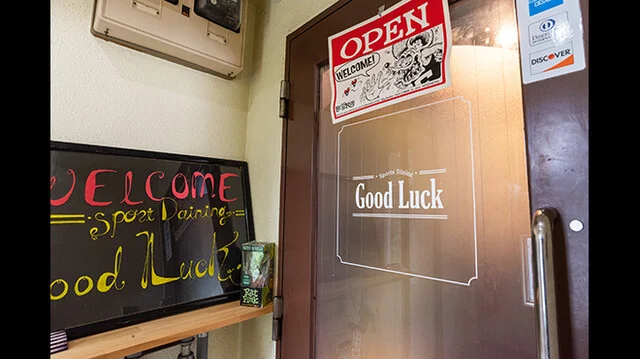 WELCOME
Sport Daining
Good Luck
OPEN
WELCOME!
Sports Dining
Good Luck
Diners Club
DISCOVER